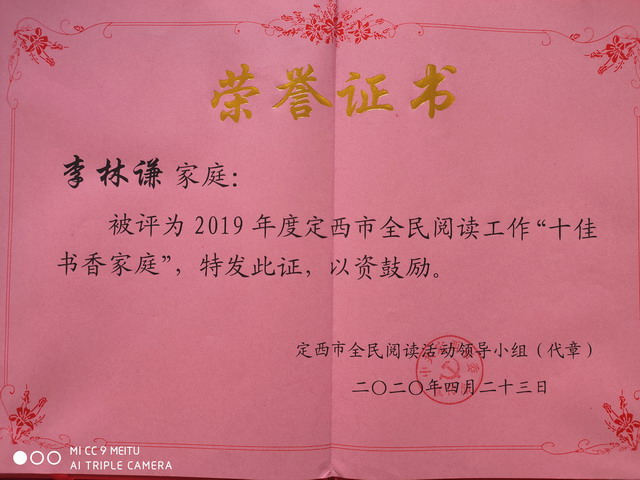 荣誉证书
李林谦家庭：
被评为2019年度定西市全民阅读工作“十佳
书香家庭”，特发此证，以资鼓励。
定西市全民阅读活动领导小组（代章）
二〇二〇年四月二十三日
MI CC 9 MEITU
AI TRIPLE CAMERA